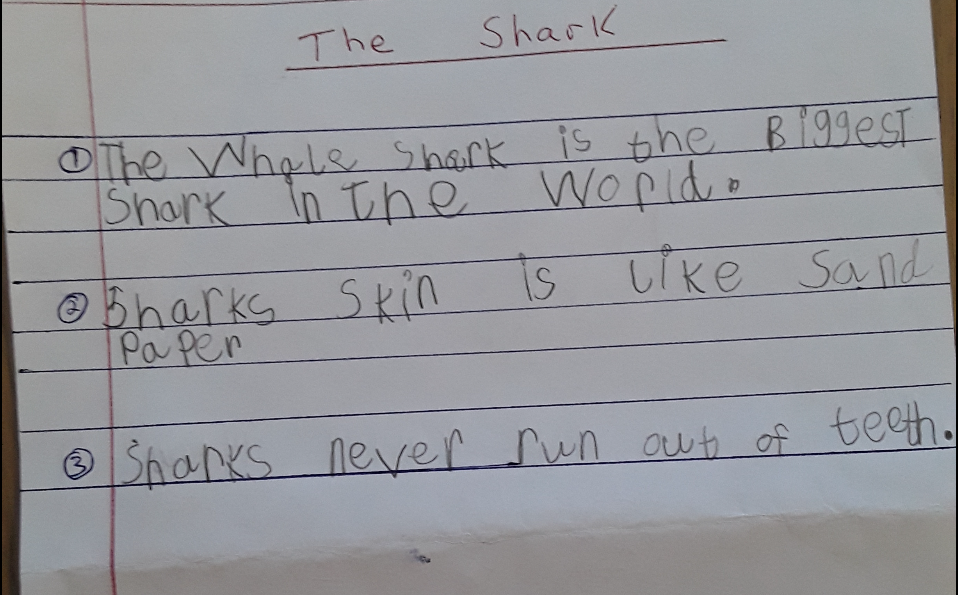 The Shark
① The Whale Shark is the Biggest
Shark in the World.
② Sharks Skin is Like Sand
PaPer
③ Sharks never run out of teeth.